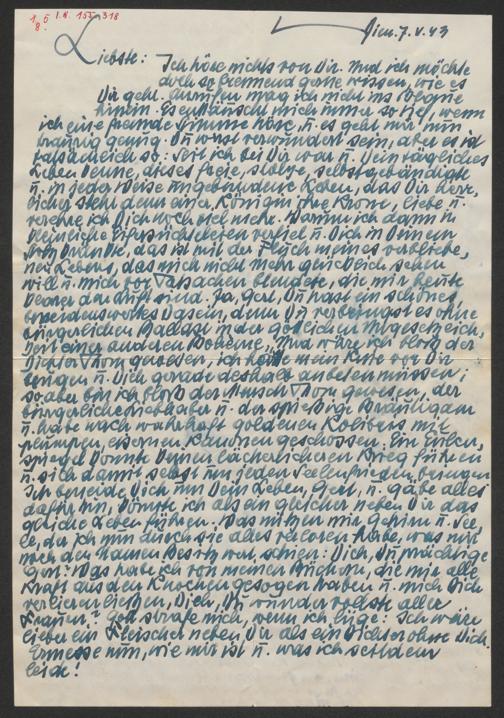 I.N. 155.318
Wien. 7.V.43
Liebste: Ich höre nichts von Dir. Und ich möchte
doch so brennend gerne wissen, wie es
Dir geht. Anrufen mag ich nicht ins Vogue
hinein. Es enttäuscht mich immer so tief, wenn
ich eine fremde Stimme höre, u. es geht mir nun
traurig genug. Du wirst verwundert sein, aber es ist
tatsächlich so: Seit ich bei Dir war u. Dein tägliches
Leben kenne, dieses freie, stolze, selbstgebändigte
u. in jeder Weise ungebundene Leben, das Dir herr-
licher steht denn einer Königin ihre Krone, liebe u.
verehre ich Dich noch viel mehr. Warum ich dann in
kleinliche Eifersüchteleien verfiel u. Dich in Deinem
Stolz kränkte, das ist mit der Fluch meines verbliebe-
nen Lebens, das mich nicht mehr glücklich sehen
will u. mich vor Tatsachen blendete, die mir heute
klarer denn Luft sind. Ja, Gerl, Du hast ein schönes,
beneidenswertes Dasein, denn Du verbringst es ohne
bürgerlichen Ballast in der göttlichen
einer anderen Boheme. Und wäre ich bloß der
Dichter Thom gewesen, ich hätte mein Knie vor Dir
beugen u. Dich gerade deshalb anbeten müssen;
so aber bin ich bloß der Mensch Thom gewesen, der
bürgerliche Liebhaber u. der spießige Bräutigam
u. habe nach wahrhaft goldenen Kolibris mit
plumpen, eisernen Kanonen geschossen. Ein Eulen-
spiegel könnte keinen lächerlicheren Krieg führen
u. sich damit selbst um jeden Seelenfrieden bringen
Ich beneide Dich um Dein Leben, Gerl, u. gäbe alles
dafür hin, könnte ich als ein gleicher neben Dir das
gleiche Leben führen. Was nützen mir Gehirn u. See-
le, da ich nun durch sie alles verloren habe, was mir
noch den Namen Besitz wert schien: Dich, Du prächtige
Gerl! Was habe ich von meinen Büchern, die mir alle
Kraft aus den Knochen gesogen haben u. mich Dich
verlieren ließen, Dich, Du wundervollste aller
Frauen? Gott strafe mich, wenn ich lüge: Ich wäre
lieber ein Fleischer neben Dir als ein Dichter ohne Dich.
Ermesse nun, wie mir ist u. was ich seitdem
leide!